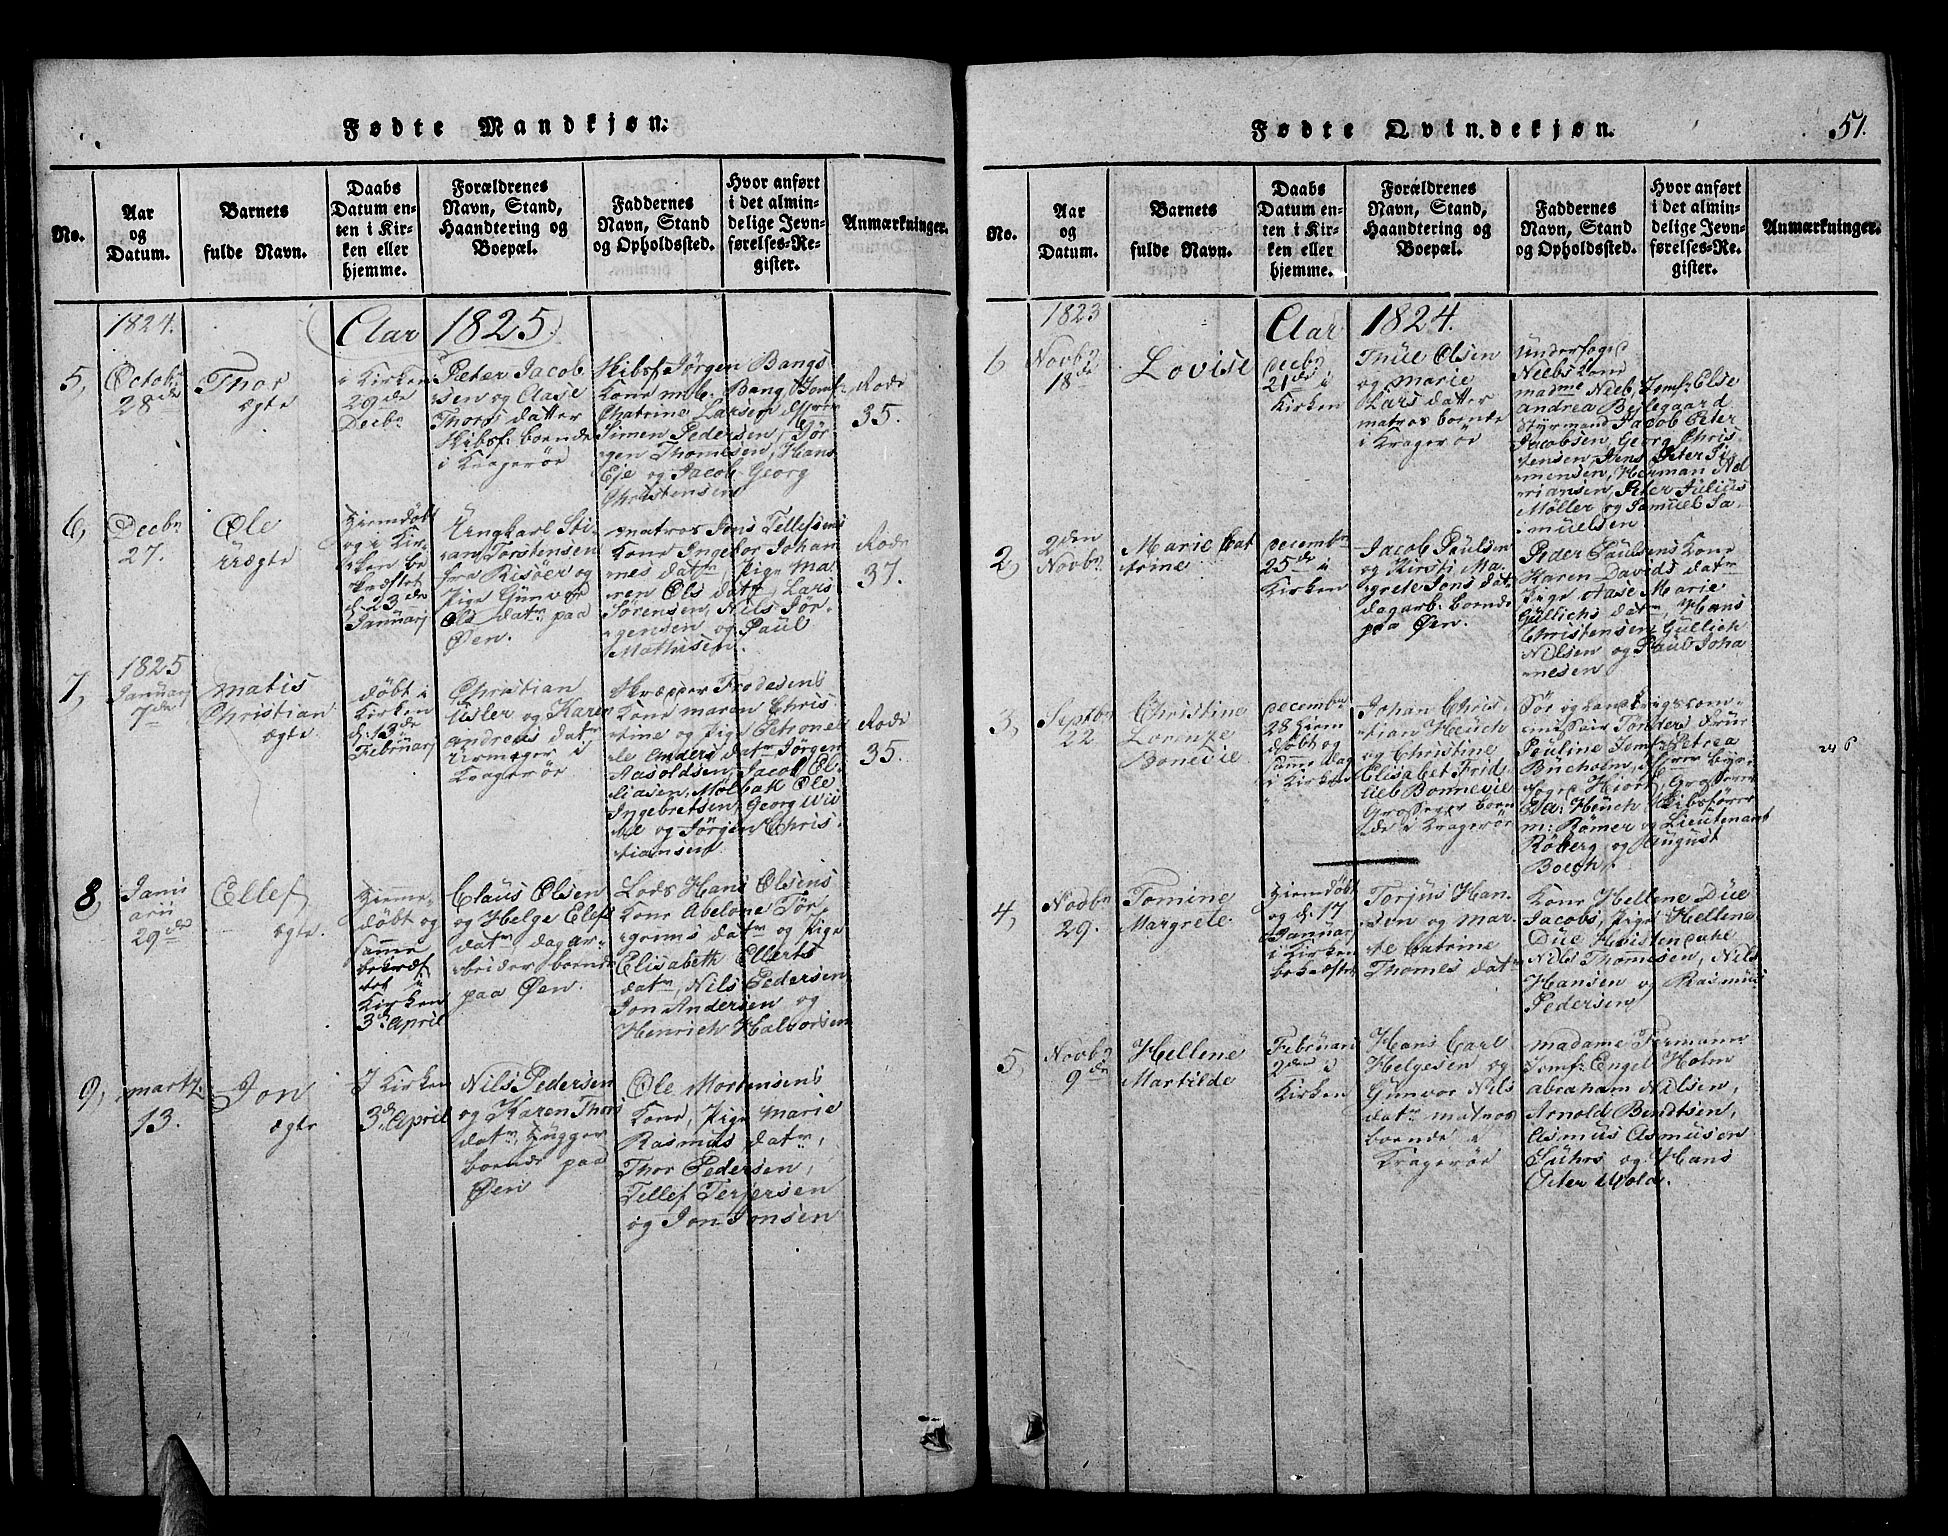 Fødte Mandkjøn.
No.
Aar
og
Datum.
Barnets
fulde Navn.
Daabs
Datum en-
ten i Kir-
ken eller
hjemme.
Forældrenes
Navn, Stand,
Haandtering og
Boepæl.
Faddernes
Navn, Stand
og Opholdssted.
Hvor anført
i det almin-
delige Jevn-
førelses-Re-
gister.
Anmærkninger.
Aar 1825
1824.
5,
Octobr
28de
Thor
ægte
i Kirken
29de
Decbr
Peter Jacob
sen og Aase
Thors datter
Skibsf: boende
i Kragerøe
Skibsf Jørgen Bangs
Kone m. C. Bang, Jomf:
Chatrine Larsen
Simen Pedersen, Jør-
gen Thomesen, Hans
Eje og Jacob Georg
Christensen
Rode
35.
6,
Decbr
27.
Ole
uægte
Hiemdøbt
og i Kir-
ken be
kræftet
d. 23de
Januarj
Ungkarl Sti-
an Torstensen
fra Risöer og
Pige Gunvor
Ols datr paa
Øen.
matros Jens Tellefsens
Kone Ingebor Johan
nes datr Pige Ma
ren Ols datr Lars
Sørensen, Nils Jør-
gensen og Paul
Mathisen.
Rode
37.
1825
7,
Januarj
7de
Matis
Christian
ægte
døbt i
Kirken
d. 13de
Februarj
Christian
Esler og Karen
Andreas datr
Urmager i
Kragerøe
Skræpper Frodesens
Kone maren Chris
tine og Pige Petronel
le Anders datr Jørgen
Aasoldsen, Jacob El-
liasen, Molbak Ole
Ingebretsen, Georg Wii
og Jørgen Chris-
tiansen
Rode
35.
8,
Janu
arii
29de
Ellef
ægte.
Hieme-
døbt og
samme
bekræf
tet i
Kirken
3de April
Claus Olsen
og Helge Elefs
datr dagar-
beider boende
paa Øen.
Lods Hans Olsens
Kone Abelone Tør-
grims datr og Pige
Elisabeth Ellerts
datr, Nils Pedersen
Jon Andersen og
Henrich Halvorsen
9,
martz
13.
Jon
ægte
I Kirken
3de April
Nils Pedersen
og Karen Thors
datr, Hugger
boende paa
Øen
Ole Mortensens
Kone, Pige Marie
Rasmus datr,
Thor Pedersen,
Tellef Terjersen
og Jon Jonsen
Fødte Qvindekjøn.
51.
No.
Aar
og
Datum.
Barnets
fulde Navn.
Daabs
Datum en-
ten i Kir-
ken eller
hjemme.
Forældrenes
Navn, Stand,
Haandtering og
Boepæl.
Faddernes
Navn, Stand
og Opholdssted.
Hvor anført
i det almin-
delige Jevn-
førelses-Re-
gister.
Anmærkninger.
1823
Aar 1824.
Novbr
18de
Lovise
Decbr
21de i
Kirken
Thue Olsen
og Marie
Lars datter
matros boende
i Kragerøe
Underfoged
Neebs Kone
madme Neeb, Jomf: Else
andrea Bejlegaard
Styrmand Jacob Peter
Jacobsen, Georg Chris-
tensen, Jens Peter Si-
mensen, Herman Ad
riansen, Peter Julius
Möller og Samuel Sa-
muelsen
2,
2den
Novbr
Marie Cat
trine
decembr
25de i
Kirken
Jacob Paulsen
og Kirsti Ma-
grete Jens dat
dagarb. boende
paa Øen.
Peder Paulsens Kone
Karen Davids datr
Pige Aase Marie
Gullichs datr, Hans
Christensen Gullich
Nilsen og Paul Joha
nesen
3,
Septbr
22.
Christine
Lorenze
Bonevie
decembr
28 hiem
døbt og
samme dag
i Kirken
Johan Chris-
tian Heuch
og Christine
Elisabet Frid-
lieb Bonnevie
Grosserer boen
de i Kragerør
Sør og Land Krigscom-
missair Tönders Frue
Pauline Jomf: Petrea
Bucholm, Herr Bye-
foged Hiort, Grosserer
Ed: Heuch Skibsfører
m: Römer og Lieutenant
Roberg og August
Boegh.
24 6
4,
Novbr
29.
Tomine
Margrete
Hiemdøbt
og d. 17
Januarj
i Kirken
bekræftet
Torjus Han-
sen og mar-
te Catrine
Thomes datr
Kone Hellene Due
Jacobs, Pige Hellene
Due Kristensche
Nils Thomesen, Nils
Hansen og Rasmus
Pedersen
5,
Novbr
9de
Hellene
Martilde
Februari
2den i
Kirken
Hans Carl
Helgesen og
Gunvor Nils
datr matros
boende i
Kragerøe
madame Fermann
Jomf: Engel Holm
abraham Nilsen,
Arnold Bendtsen,
Asmus Asmusen
Suhrs og Hans
Peter Mold.